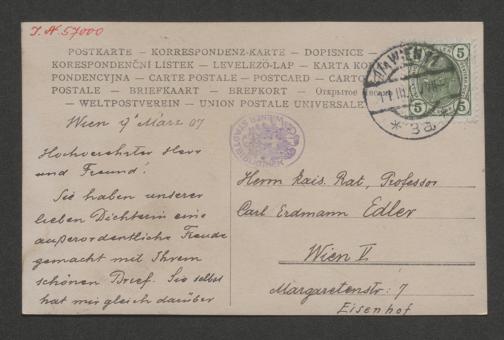 J. N. 57000
POSTKARTE – KORRESPONDENZ-KARTE – DOPISNICE –
KORESPONDENČNÍ LÍSTEK – LEVELEZŐ-LAP – KARTA KOR
PONDENCYJNA – CARTE POSTALE – POSTCARD – CARTO
POSTALE – BRIEFKAART – BREFKORT – Открытое письмо
– WELTPOSTVEREIN – UNION POSTALE UNIVERSALE
WIEN
3a
5 5
5 5
Wien 9ᵗ März 07
Hochverehrter Herr
und Freund!
Sie haben unserer
lieben Dichterin eine
außerordentliche Freude
gemacht mit Ihrem
schönen Brief. Sie selbst
hat mir gleich darüber
Herrn kais. Rat, Professor
Carl Erdmann Edler
Wien V
Margaretenstr: 7
Eisenhof